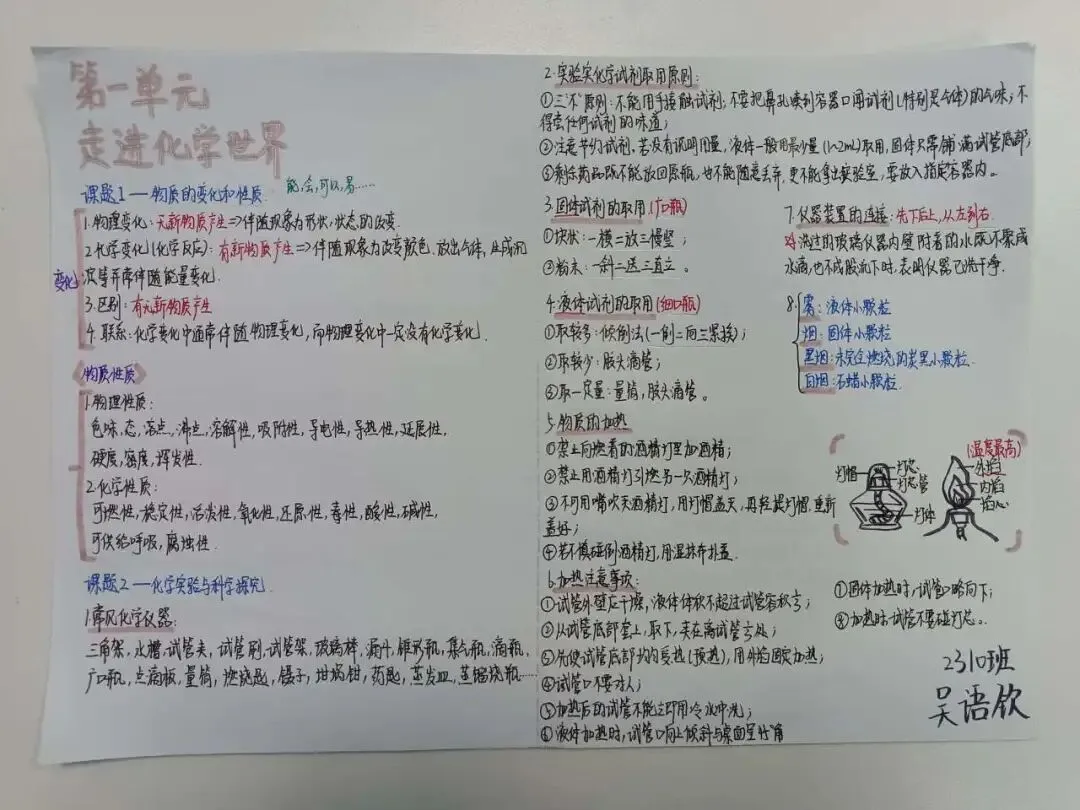 第一单元
走进化学世界
课题1 — 物质的变化和性质
能,会,可以,易……
变化
1.物理变化: 无新物质产生⇒伴随现象为形状,状态的改变.
2.化学变化(化学反应): 有新物质产生⇒伴随现象为改变颜色.放出气体,生成沉
淀等并常伴随能量变化.
3.区别: 有无新物质产生
4.联系:化学变化中通常伴随物理变化,而物理变化中一定没有化学变化.
《物质性质》
1.物理性质:
色味,态,溶点,沸点,溶解性,吸附性,导电性,导热性,延展性,
硬度,密度,挥发性.
2.化学性质:
可燃性,稳定性,活泼性,氧化性,还原性,毒性,酸性,碱性,
可供给呼吸,腐蚀性.
课题2 —化学实验与科学探究.
1.常见化学仪器:
三角架,水槽,试管夹,试管刷,试管架,玻璃棒,漏斗,锥形瓶,集气瓶,滴瓶,
广口瓶,点滴板,量筒,燃烧匙,镊子,坩埚钳,药匙,蒸发皿,蒸馏烧瓶……
2.实验室化学试剂取用原则:
①三"不"原则:不能用手接触试剂;不要把鼻孔凑到容器口闻试剂(特别是气体)的气味;不
得尝任何试剂的味道;
②注意节约试剂,若没有说明用量,液体一般用最少量(1~2mL)取用,固体只需铺满试管底部;
③剩余药品既不能放回原瓶,也不能随意丢弃,更不能拿出实验室,要放入指定容器内。
3.固体试剂的取用(广口瓶)
①块状:一横二放三慢竖;
②粉末:一斜二送三直立。
4.液体试剂的取用(细口瓶)
①取较多:倾倒法(一倒二向三紧挨);
②取较少:胶头滴管;
③取一定量:量筒,胶头滴管。
5.物质的加热
①禁止向燃着的酒精灯里加酒精;
②禁止用酒精灯引燃另一只酒精灯;
③不可用嘴吹灭酒精灯,用灯帽盖灭,再轻提灯帽,重新
盖好;
④若不慎碰倒酒精灯,用湿抹布扑盖.
6.加热注意事项:
①试管外壁应干燥,液体体积不超过试管容积⅓;
②从试管底部套上,取下,夹在离试管⅓处;
③先使试管底部均匀受热(预热),用外焰固定加热;
④试管口不要对人;
⑤加热后的试管不能立即用冷水冲洗;
⑥液体加热时,试管口向上倾斜与桌面呈45°角
7.仪器装置的连接: 先下后上,从左到右.
洗过的玻璃仪器内壁附着的水既不聚成
水滴,也不成股流下时,表明仪器已洗干净.
8.
雾: 液体小颗粒
烟: 固体小颗粒
黑烟:未完全燃烧的炭黑小颗粒
白烟:石蜡小颗粒.
灯帽
灯芯
灯芯管
灯体
(温度最高)
外焰
内焰
焰心
①固体加热时,试管口略向下;
⑧加热时试管不要碰灯芯。
2310班
吴语钦